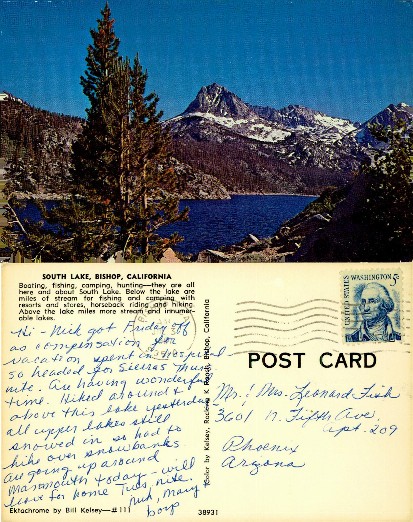 SOUTH LAKE, BISHOP, CALIFORNIA
Boating, fishing, camping, hunting—they are all
here and about South Lake. Below the lake are
miles of stream for fishing and camping with
resorts and stores, horseback riding and hiking.
Above the lake miles more stream and innumer-
able lakes.
Hi - Mick got Friday off
as compensation for
vacation spent in hospital
so headed for Sierras Thurs.
nite. Are having wonderful
time. Hiked around &
above this lake yesterday
all upper lakes still
snowed in so had to
hike over snowbanks
are going up around
Mammouth today - will
leave for home Tues. nite.
Mick, Mary &
boys
Ektachrome by Bill Kelsey—#111
Color by Kelsey, Bishop, California
38931
UNITED STATES
WASHINGTON 5c
POST CARD
Mr. & Mrs. Leonard Fish
3601 N. Fifth Ave.
Apt. 209
Phoenix
Arizona